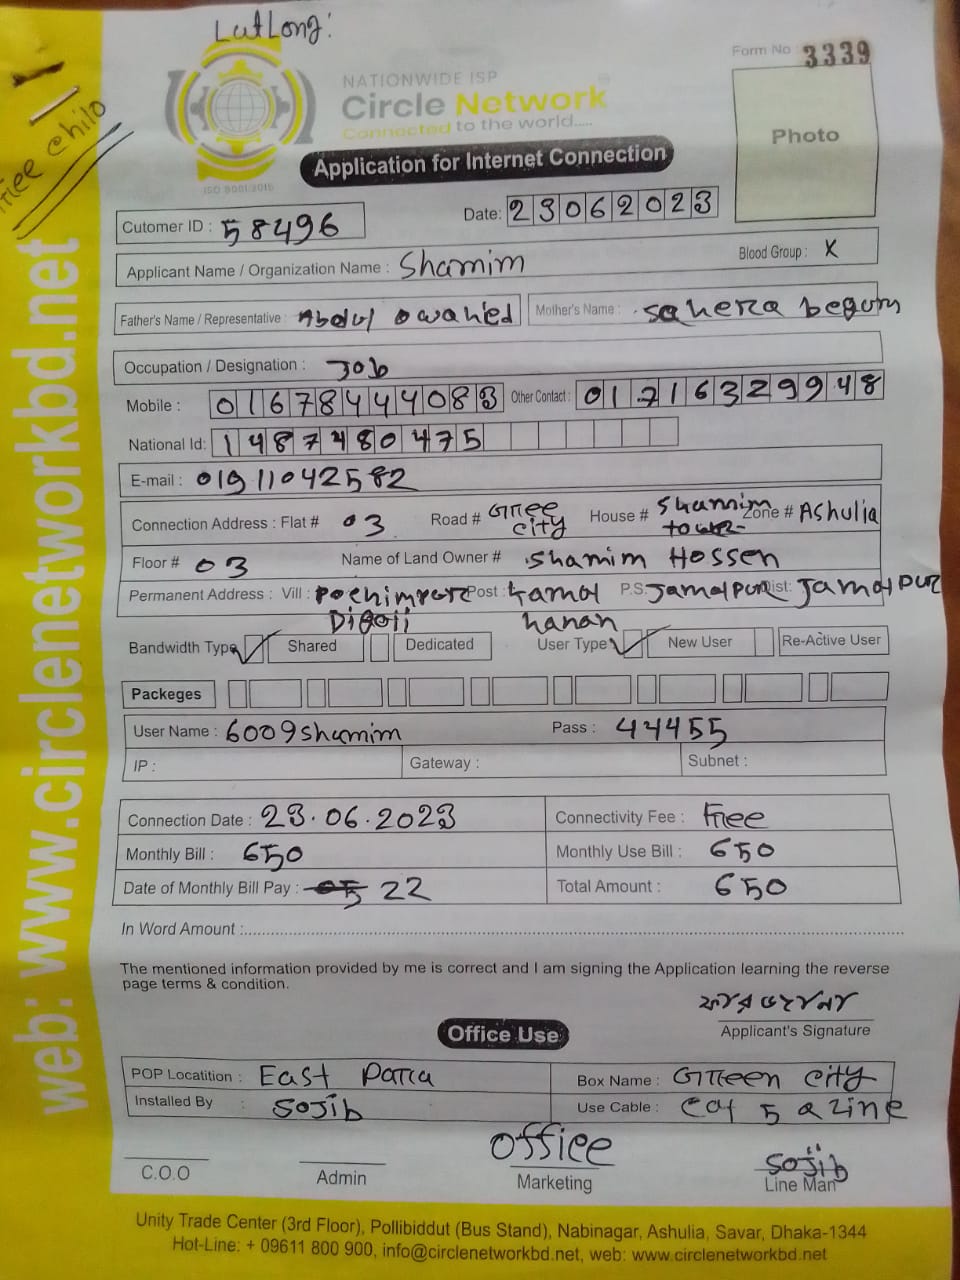 LatLong:
Form No : 3339
NATIONWIDE ISP
Circle Network
Connected to the world.....
ISO 9001:2015
Photo
Free chilo
Application for Internet Connection
Cutomer ID : 58496
Date: 23062023
Applicant Name / Organization Name : Shamim
Blood Group : X
Father's Name / Representative : Abdul owahed
Mother's Name : sahera begum
Occupation / Designation : Job
Mobile : 01678444083
Other Contact : 01716329948
National Id: 1487480475
E-mail : 01911042582
Connection Address : Flat # 03 Road # Green city House # Shamim tower Zone # Ashulia
Floor # 03 Name of Land Owner # Shamim Hossen
Permanent Address : Vill : Post : kamal khanan P.S. Jamalpur Dist: Jamalpur
Bandwidth Type Shared Dedicated User Type New User Re-Active User
Packeges
User Name : 6009shamim Pass : 44455
IP : Gateway : Subnet :
Connection Date : 23.06.2023 Connectivity Fee : Free
Monthly Bill : 650 Monthly Use Bill : 650
Date of Monthly Bill Pay : 05 22 Total Amount : 650
In Word Amount :
The mentioned information provided by me is correct and I am signing the Application learning the reverse
page terms & condition.
Applicant's Signature
Office Use
POP Locatition : East Para Box Name : Green city
Installed By : Sojib Use Cable : Cat 5 a 2ine
office
Sojib
C.O.O Admin Marketing Line Man
Unity Trade Center (3rd Floor), Pollibiddut (Bus Stand), Nabinagar, Ashulia, Savar, Dhaka-1344
Hot-Line: + 09611 800 900, info@circlenetworkbd.net, web: www.circlenetworkbd.net
web: www.circlenetworkbd.net